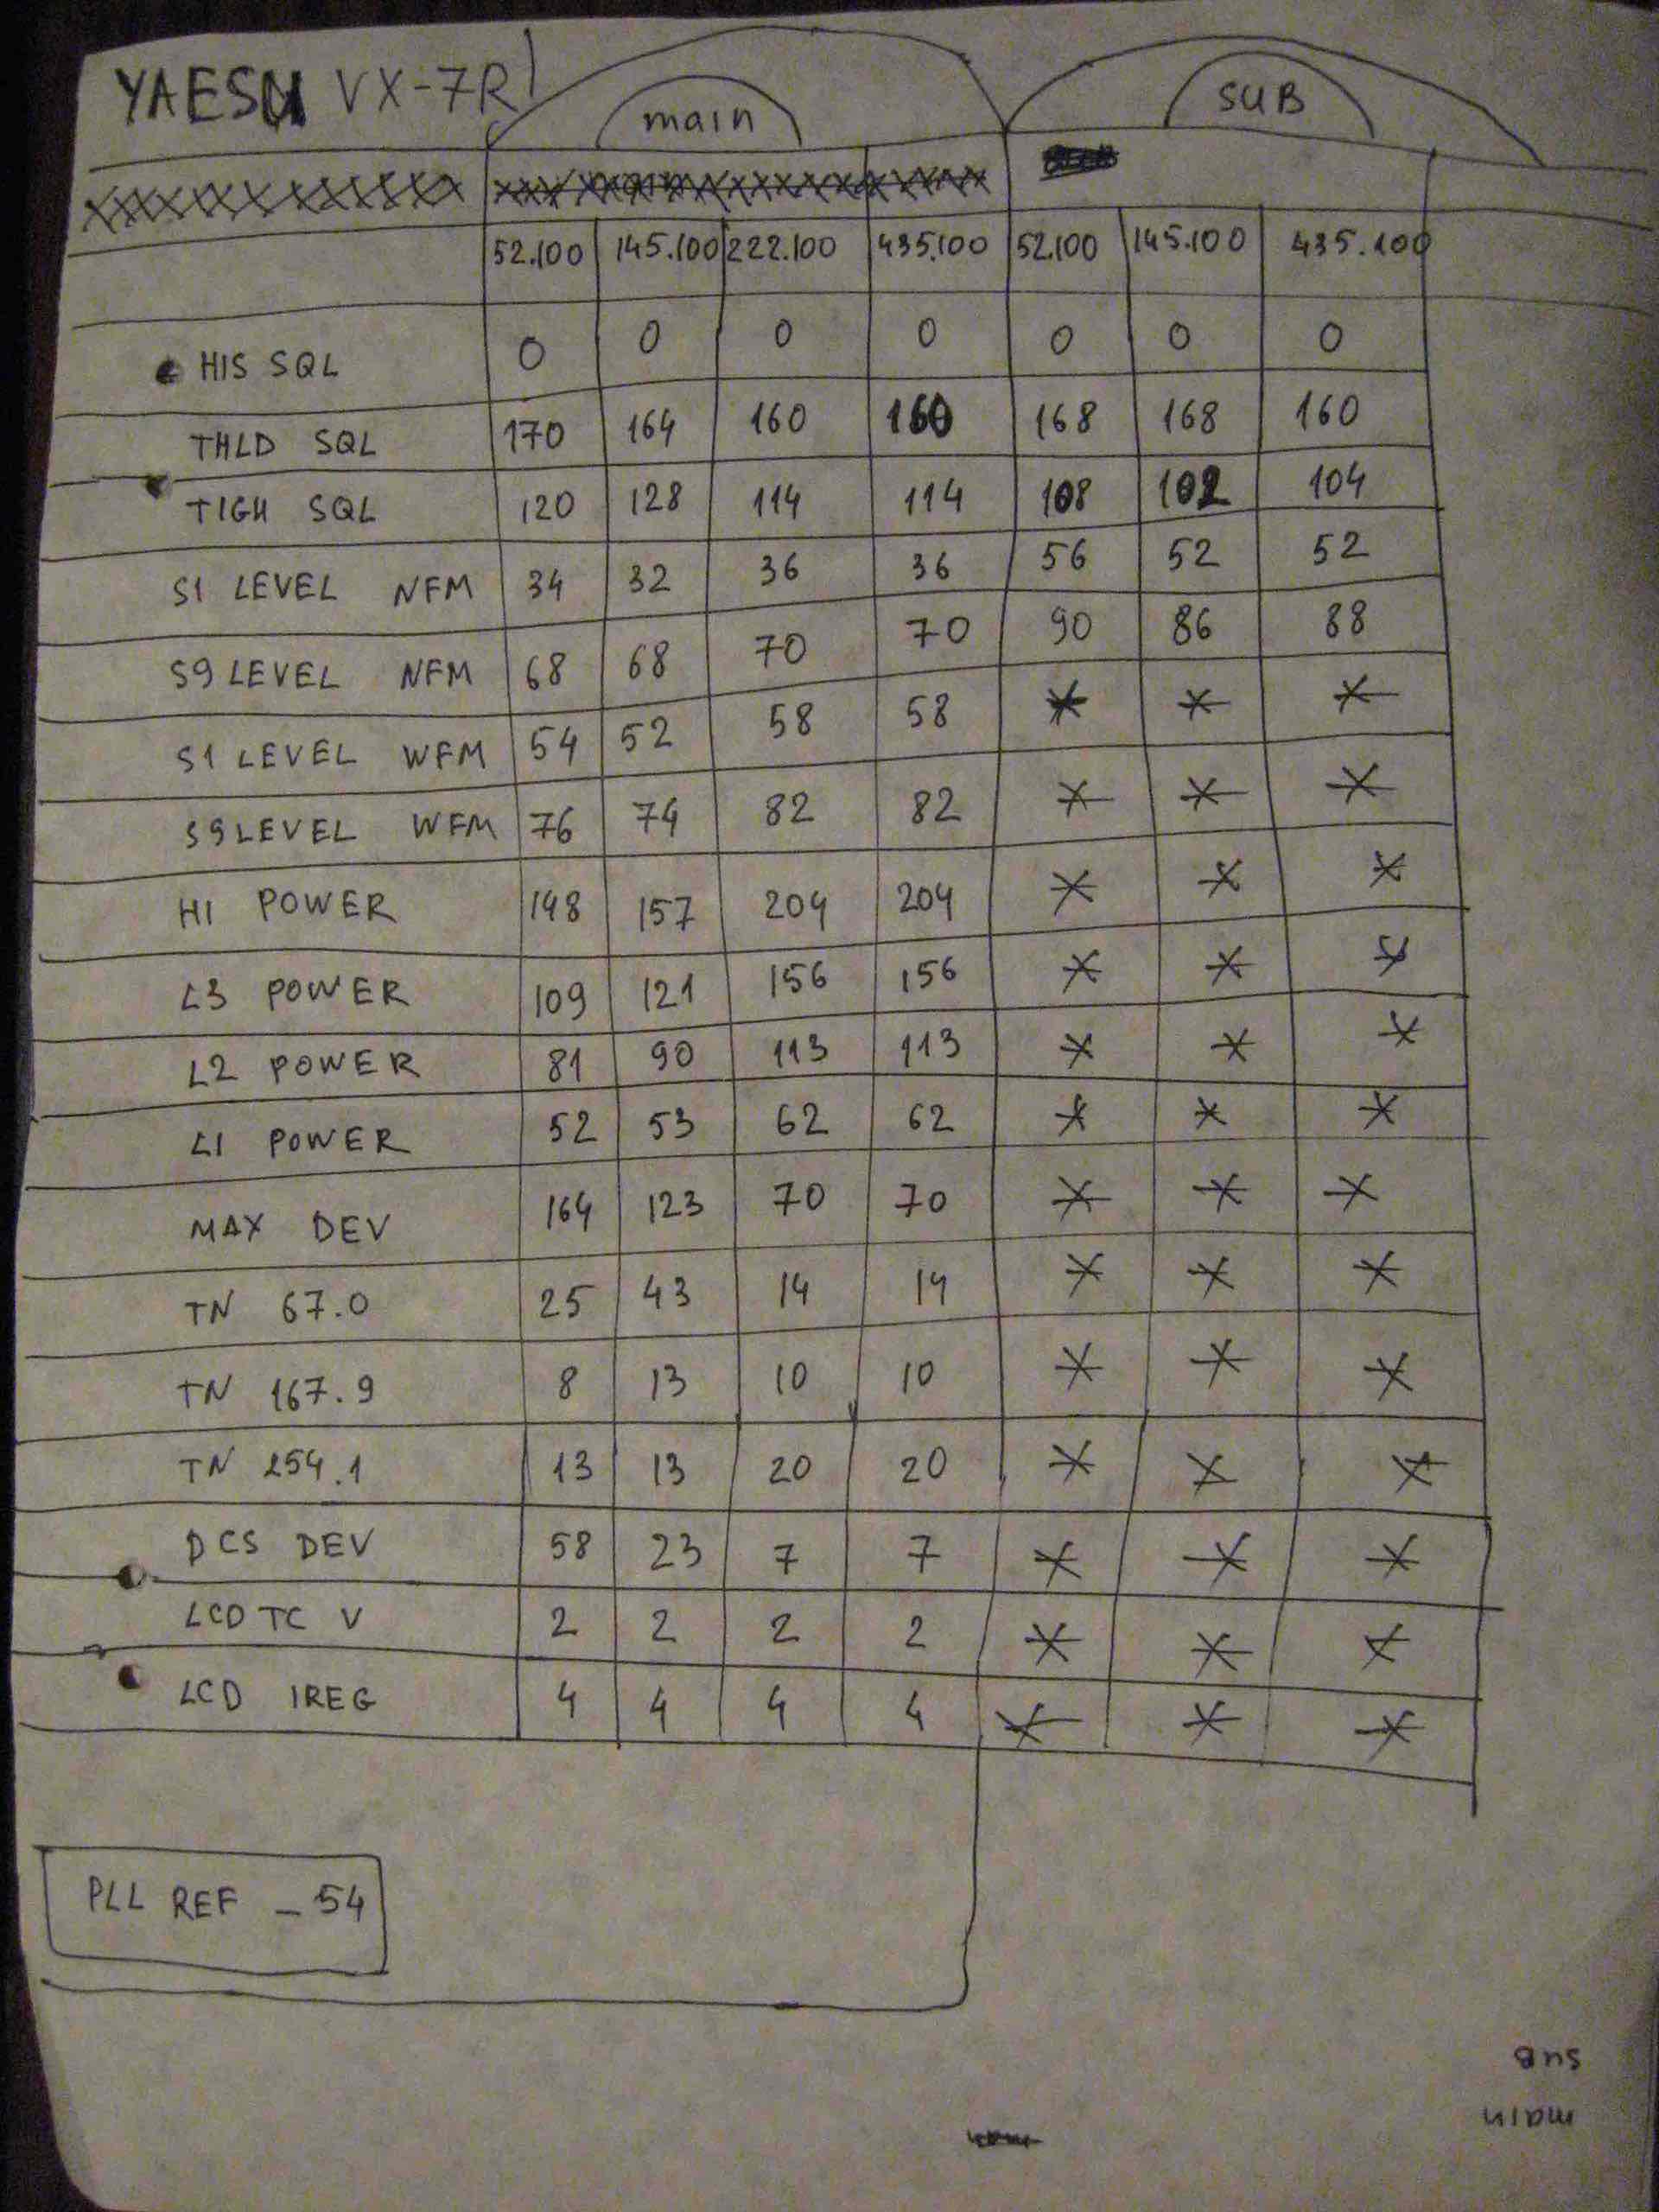 YAESU VX-7R
main SUB
52.100 145.100 222.100 435.100 52.100 145.100 435.100
HIS SQL 0 0 0 0 0 0 0
THLD SQL 170 164 160 160 168 168 160
TIGH SQL 120 128 114 114 108 102 104
S1 LEVEL NFM 34 32 36 36 56 52 52
S9 LEVEL NFM 68 68 70 70 90 86 88
S1 LEVEL WFM 54 52 58 58 * * *
S9 LEVEL WFM 76 74 82 82 * * *
HI POWER 148 157 204 204 * * *
L3 POWER 109 121 156 156 * * *
L2 POWER 81 90 113 113 * * *
L1 POWER 52 53 62 62 * * *
MAX DEV 164 123 70 70 * * *
TN 67.0 25 43 14 14 * * *
TN 167.9 8 13 10 10 * * *
TN 254.1 13 13 20 20 * * *
DCS DEV 58 23 7 7 * * *
LCD TC V 2 2 2 2 * * *
LCD IREG 4 4 4 4 * * *
PLL REF - 54
SUB
main